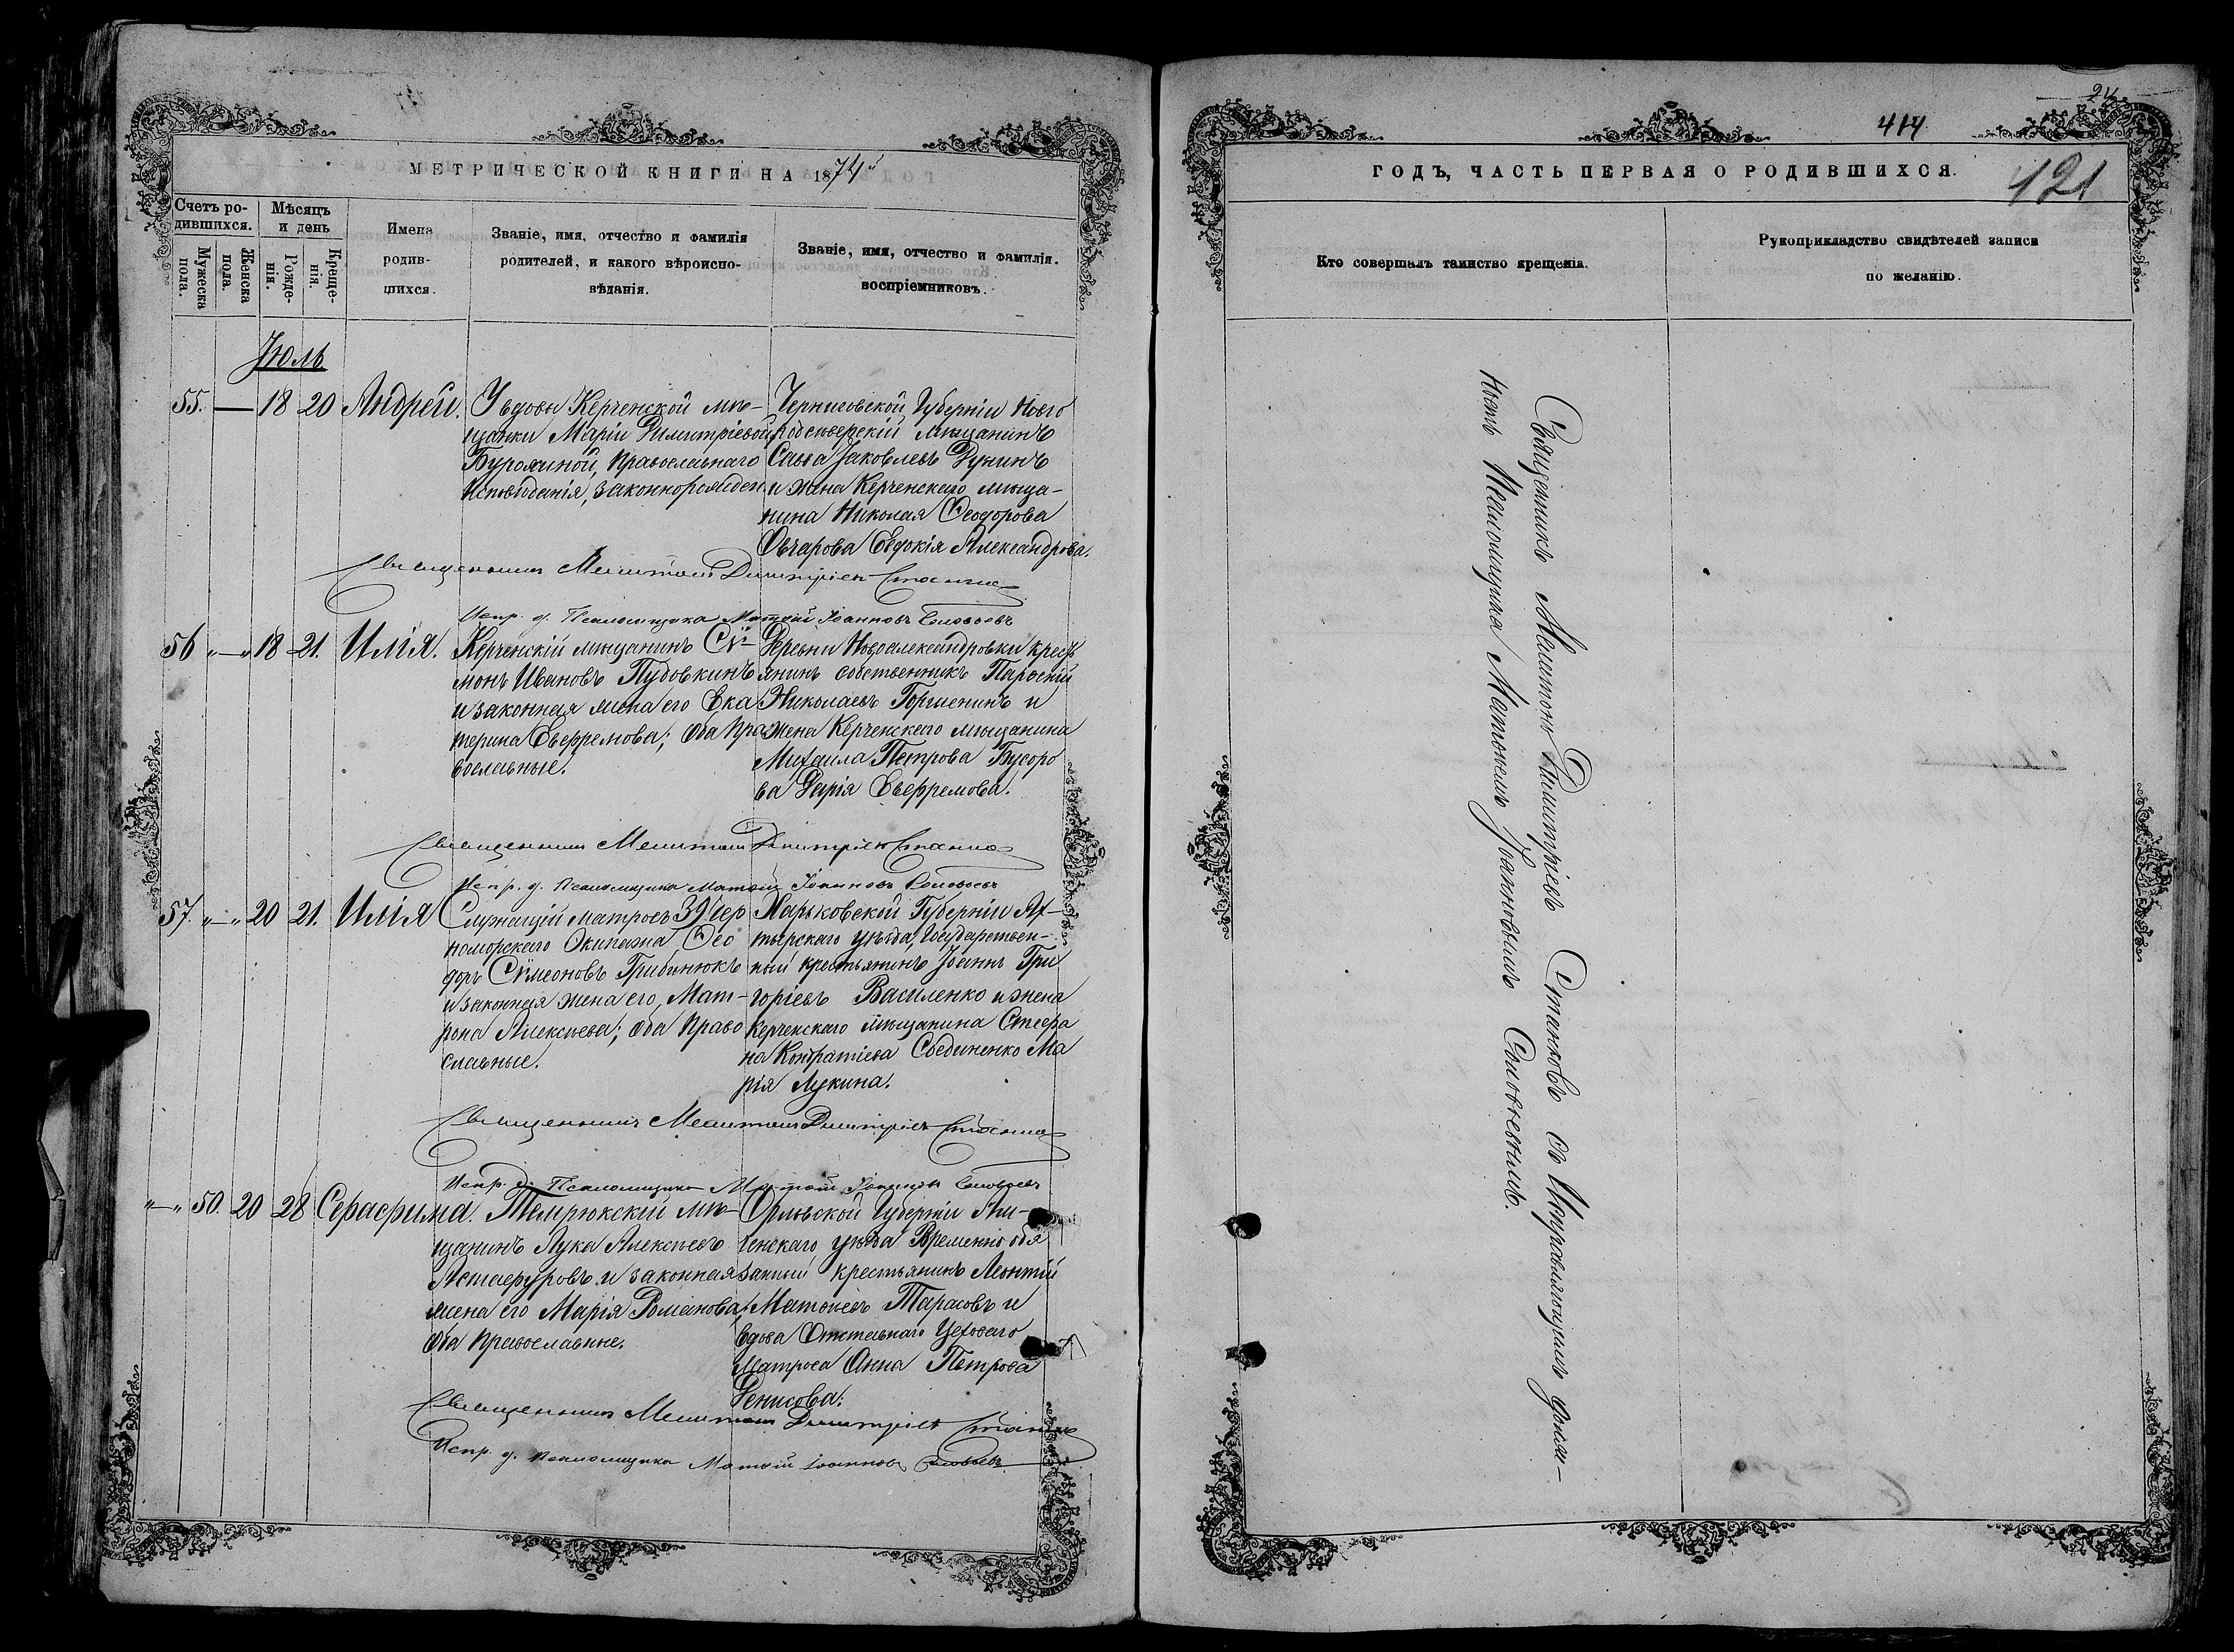 МЕТРИЧЕСКОЙ КНИГИ НА 1874й
Счетъ ро-
дившихся.
Мужеска
пола.
Женска
пола.
Мѣсяцъ
и день
Рожде-
нія.
Креще-
нія.
Имена
родив-
шихся.
Званіе, имя, отчество и фамилія
родителей, и какого вѣроиспо-
вѣданія.
Званіе, имя, отчество и фамилія.
воспріемниковъ.
Іюль
55. — 18 20 Андрей.
Увдовы Керченской мѣ-
щанки Маріи Димитріевой
Бурояиной, православнаго
исповѣданія, законнорожден
Черниговской Губерніи Новго
родсѣверскій мѣщанинъ
Савва Іаковлевъ Дунинъ
и жена Керченскаго мѣща-
нина Николая Ѳеодорова
Овчарова Евдокія Александрова.
Священникъ Мелитонъ Димитріевъ Станковъ
Испр. д. Псаломщика Матѳій Іоанновъ Соловьевъ
56 „—„ 18 21. Илія.
Керченскій мѣщанинъ Сѵ-
монъ Ивановъ Пудовкинъ
и законная жена его Ека
терина Евфремова; оба пра
вославные.
Деревни Новоалександровки крест
янинъ собственникъ Парѳеній
Николаевъ Горшенинъ и
жена Керченскаго мѣщанина
Михаила Петрова Бугоро
ва Дарія Евфремова.
Священникъ Мелитонъ Димитріевъ Станковъ
Испр. д. Псаломщика Матѳій Іоанновъ Соловьевъ
57. „—„ 20 21. Илія
Служащій матросъ 39 Чер
номорскаго Экипажа Ѳео
доръ Сѵмеоновъ Грибинюкъ
и законная жена его, Мат-
рона Алексѣева; оба право
славные.
Харьковской Губерніи Ах-
тырскаго уѣзда, Государствен-
ный крестьянинъ Іоаннъ Гри
горіевъ Василенко и жена
Керченскаго мѣщанина Стефа
на Кондратіева Сѣединенко Ма
рія Лукина.
Священникъ Мелитонъ Димитріевъ Станковъ
Испр. д. Псаломщика Матѳій Іоанновъ Соловьевъ
„—„ 50. 20 28 Серафима.
Темрюкскій мѣ-
щанинъ Лука Алексѣевъ
Астафуровъ и законная
жена его Марія Романова;
Оба православные.
Орловской Губерніи
уѣзда Временно обя
занный крестьянинъ Леонтій
Матѳіевъ Тарасовъ и
вдова Отставнаго Цеховаго
Матроса Анна Петрова
Денисова.
Священникъ Мелитонъ Димитріевъ Станковъ
Испр. д. Псаломщика Матѳій Іоанновъ Соловьевъ
24
414
121
ГОДЪ, ЧАСТЬ ПЕРВАЯ О РОДИВШИХСЯ.
Кто совершалъ таинство крещенія.
Рукоприкладство свидѣтелей записи
по желанію.
Священникъ Мелитонъ Димитріевъ Станковъ съ Исправляющимъ должн-
ность Псаломщика Матѳіемъ Іоанновымъ Соловьевымъ.